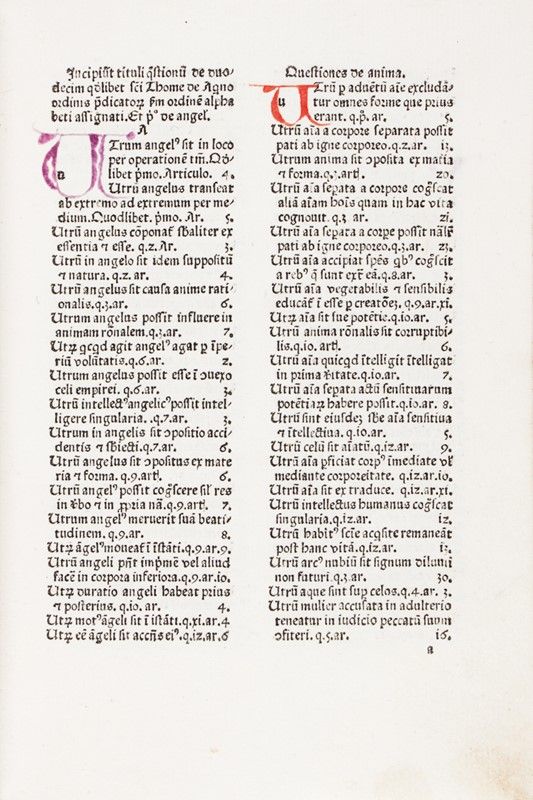 Incipiūt tituli q̄stionū de duo⸗
decim qd̄libet sc̄i Thome de Aq̄no
ordinis p̄dicatoꝝ ẜm ordinē alpha
beti assignati. Et p̄º de angel'.
A
Utrum angelꝰ sit in loco
per operationē tm̄. Qd̄⸗
libet p̄mo. Articulo. 4.
Utrū angelus transeat
ab extremo ad extremum per me⸗
dium. Quodlibet. p̄mo. Ar. 5.
Utrū angelus cōponat̄ sb̄aliter ex
essentia ⁊ esse. q.2. Ar. 3.
Utrū in angelo sit idem suppositū
⁊ natura. q.2. ar. 4.
Utrū angelus sit causa anime rati⸗
onalis. q.3. ar. 6.
Utrum angelus possit influere in
animam rōnalem. q.3. ar. 7.
Utꝝ qcqd agit angelꝰ agat ꝑ īpe⸗
riū volūtatis. q.6. ar. 2.
Utrum angelus possit esse ī ɔuexo
celi empirei. q.6. ar. 3.
Utrū intellectꝰ angelicꝰ possit intel⸗
ligere singularia. .q.7. ar. 3.
Utrum in angelis sit ɔpositio acci⸗
dentis ⁊ sb̄iecti. q.7. ar. 6.
Utrū angelus sit ɔpositus ex mate
ria ⁊ forma. q.9. artl. 6.
Utrū angelꝰ possit coḡscere sil' res
in v̄bo ⁊ in ꝓpria nā. q.9. artl. 7.
Utrum angelꝰ meruerit suā beati⸗
tudinem. q.9. ar. 8.
Utꝝ āgelꝰ moueat̄ ī īstāti. q.9. ar. 9.
Utrū angeli pn̄t imp̄mē vel aliud
facē in corpora inferiora. q.9. ar. 10.
Utꝝ duratio angeli habeat prius
⁊ posterius. q.10. ar. 4.
Utꝝ motꝰ āgeli sit ī īstāti. q.xi. ar. 4
Utꝝ eē āgeli sit accn̄s eiꝰ. q.12. ar. 6
Questiones de anima.
Utrū ꝑ aduētū aīe excludā⸗
tur omnes forme que prius
erant. q.p̄. ar. 5.
Utrū aīa a corpore separata possit
pati ab igne corporeo. q.2. ar. 13.
Utrum anima sit ɔposita ex mat̄ia
⁊ forma. q.3. artl. 20.
Utrū aīa sep̄ata a corpore coḡscat
aliā aīam hoīs quam in hac vita
cognouit. q.3 ar. 21.
Utrū aīa sep̄ata a corpe possit nālr̄
pati ab igne corporeo. q.3. ar. 23.
Utrū aīa accipiat sp̄es qbꝰ coḡscit
a rebꝰ q̄ sunt exͭ eā. q.8. ar. 3.
Utrū aīa vegetabilis ⁊ sensibilis
educat̄ ī esse ꝑ creatōeꝫ. q.9. ar. xi.
Utꝝ aīa sit sue potētie. q.10. ar. 5.
Utrū anima rōnalis sit corruptibi⸗
lis. q.10. artl. 6.
Utrū aīa quicqd ītelligit ītelligat
in prima v̄itate. q.10. ar. 7.
Utrū aīa sep̄ata actū sensitiuarum
potētiaꝝ habere possit. q.10. ar. 8.
Utrū sint eiusdeꝫ sb̄e aīa sensitiua
⁊ ītellectiua. q.10. ar. 5.
Utrū celū sit aīatū. q.12. ar. 9.
Utrū aīa ꝑficiat corpꝰ īmediate vl̄
mediante corporeitate. q.12. ar. 10.
Utrū aīa sit ex traduce. q.12. ar. xi.
Utrū intellectus humanus coḡscat
singularia. q.12. ar. 12.
Utrū habitꝰ scīe acq̄site remaneāt
post hanc vitā. q.12. ar. 12.
Utrū arcꝰ nubiū sit signum diluuii
non futuri. q.3. ar. 30.
Utrū aque sint suꝑ celos. q.4. ar. 3.
Utrū mulier accusata in adulterio
teneatur in iudicio peccatū suum
ɔfiteri. q.5. ar. 16.
a